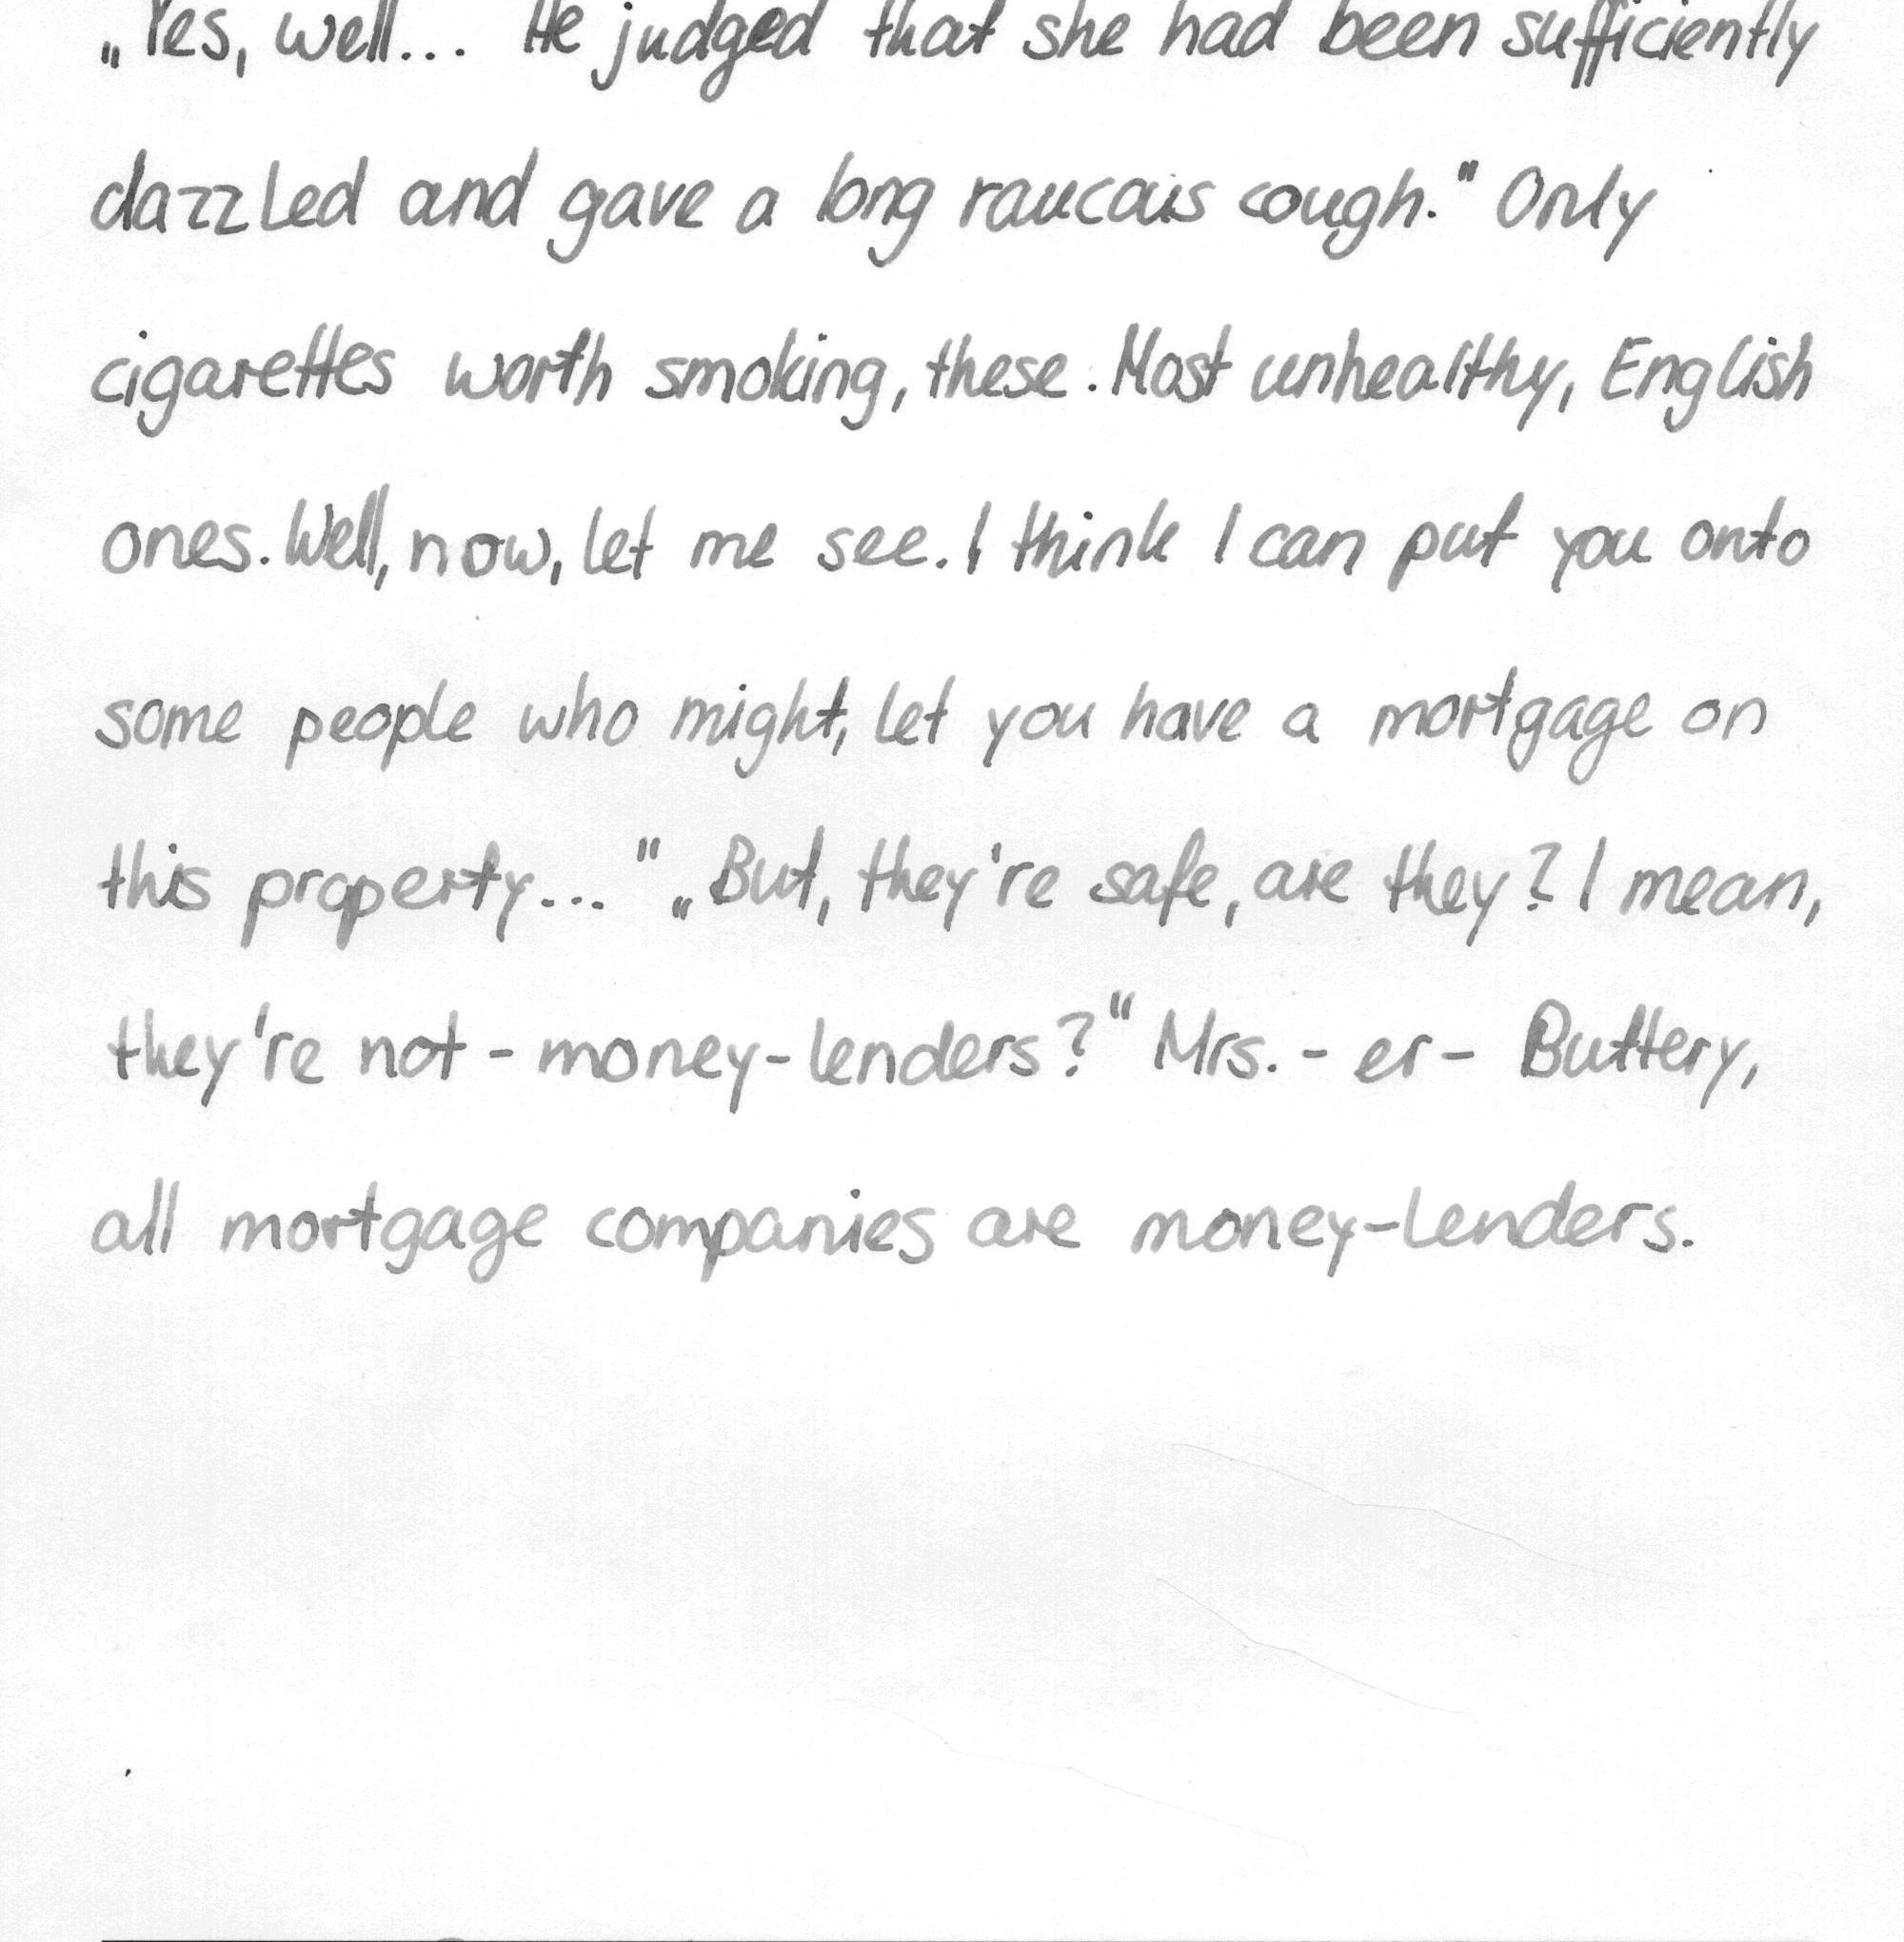 „Yes, well... He judged that she had been sufficiently
dazzled and gave a long raucous cough." Only
cigarettes worth smoking, these. Most unhealthy, English
ones. Well, now, let me see. I think I can put you onto
some people who might, let you have a mortgage on
this property..." „But, they're safe, are they? I mean,
they're not - money-lenders?" Mrs. - er - Buttery,
all mortgage companies are money-lenders.